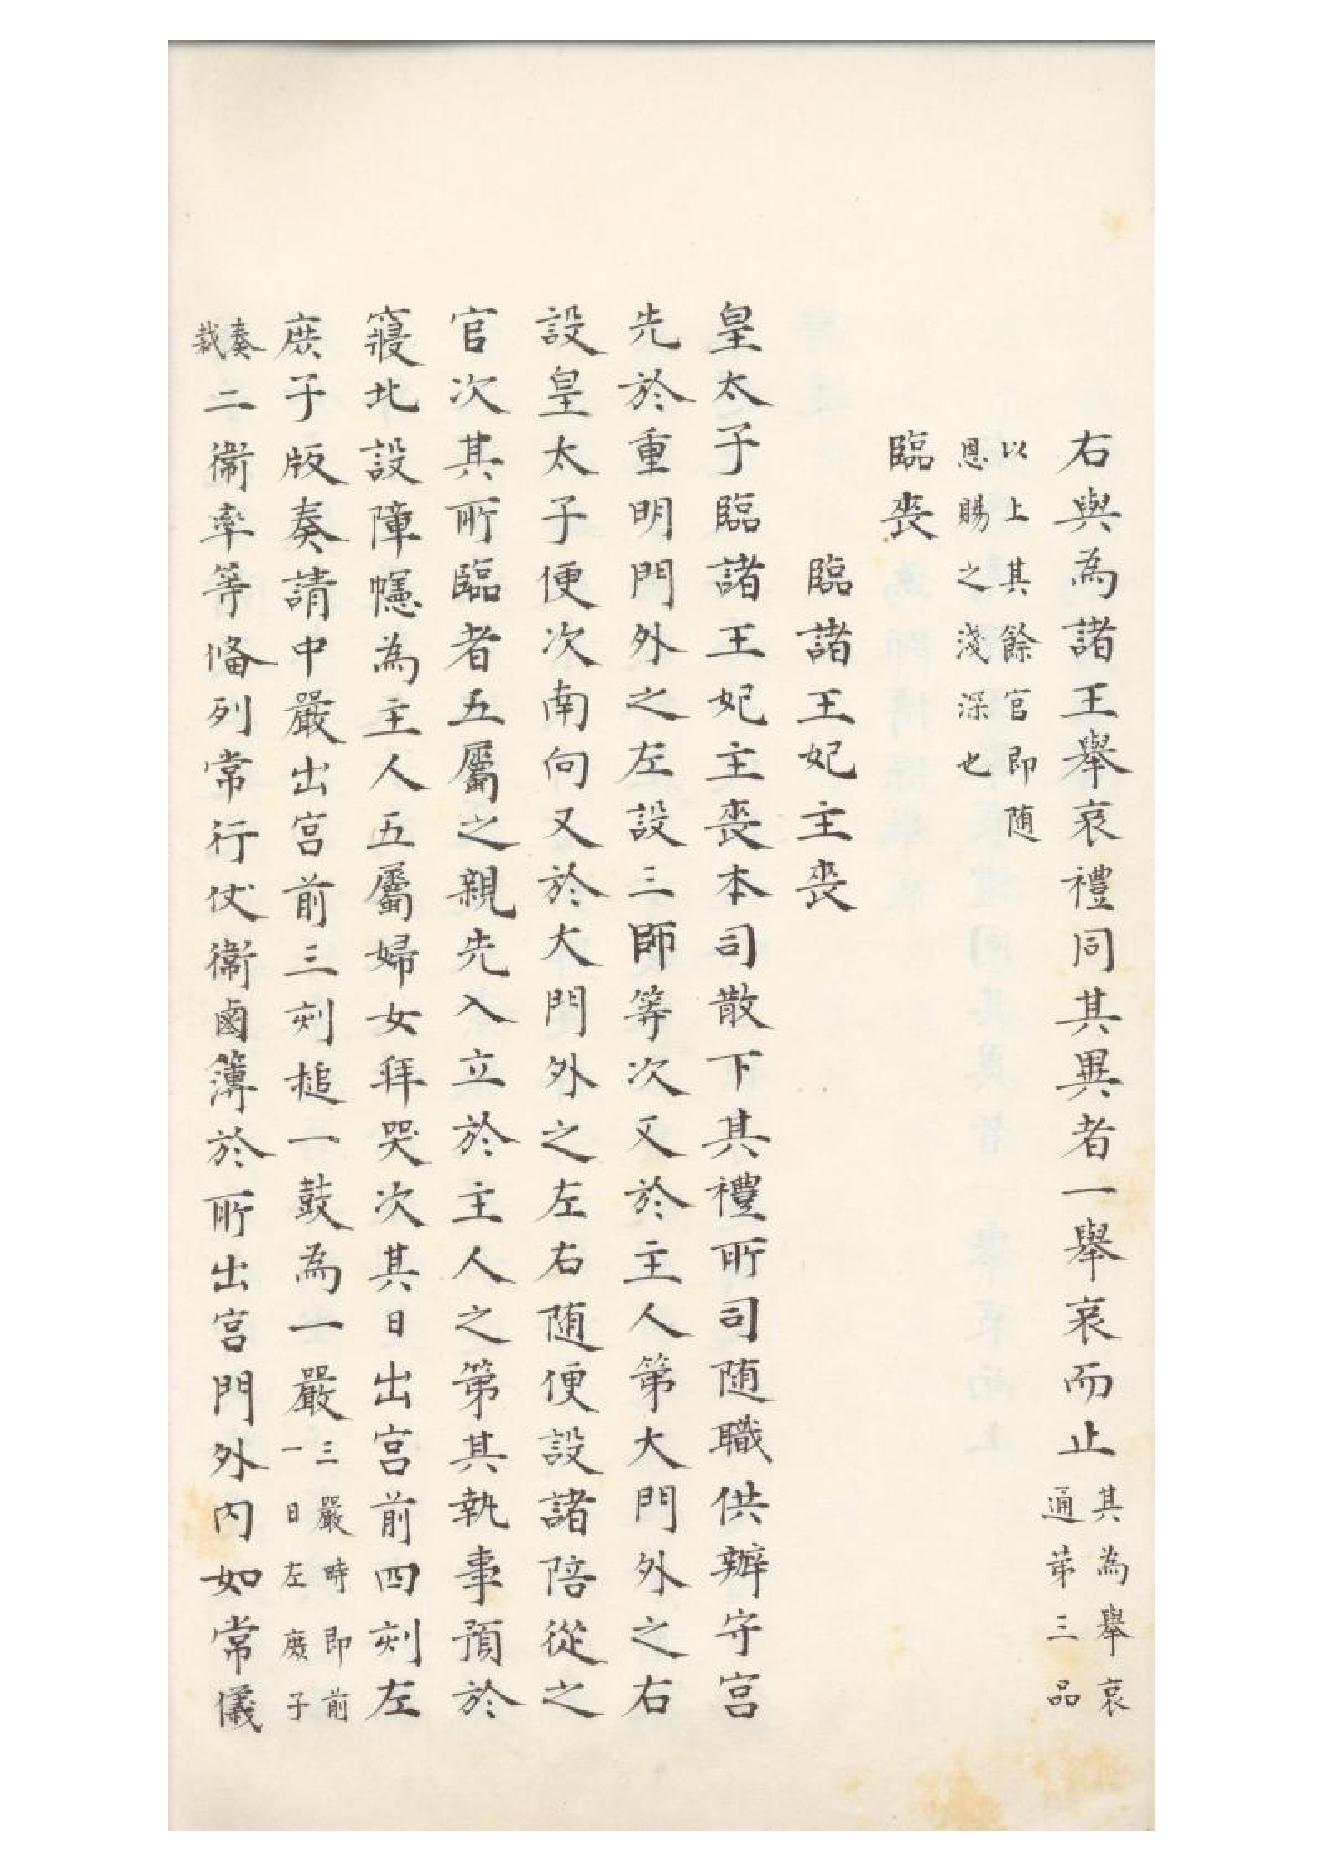 右與為諸王舉哀禮同其異者一舉哀而止其為舉哀通第三品
以上其餘官即随恩賜之淺深也
臨喪
臨諸王妃主喪
皇太子臨諸王妃主喪本司散下其禮所司随職供辦守宮
先於重明門外之左設三師等次又於主人第大門外之右
設皇太子便次南向又於大門外之左右随便設諸陪從之
官次其所臨者五屬之親先入立於主人之第其執事預於
寢北設障幰為主人五屬婦女拜哭次其日出宮前四刻左
庶子版奏請中嚴出宮前三刻槌一鼓為一嚴三嚴時即前一日左庶子
奏裁二衛率等俻列常行仗衛鹵簿於所出宮門外內如常儀